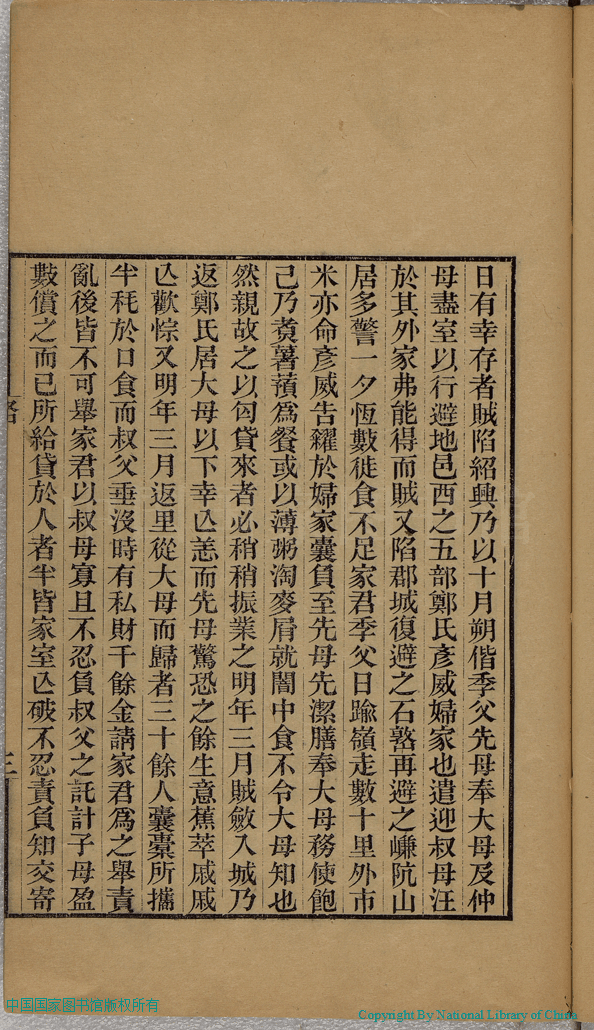 日有幸存者賊陷紹興乃以十月朔偕季父先母奉大母及仲
母盡室以行避地邑西之五部鄭氏彥威婦家也遣迎叔母汪
於其外家弗能得而賊又陷郡城復避之石硰再避之嵊阬山
居多警一夕恆數徙食不足家君季父日踰嶺走數十里外市
米亦命彥威告糴於婦家囊負至先母先潔膳奉大母務使飽
己乃煑薯蕷爲餐或以薄粥淘麥屑就闇中食不令大母知也
然親故之以匄貸來者必稍稍振業之明年三月賊斂入城乃
返鄭氏居大母以下幸亾恙而先母驚恐之餘生意蕉萃戚戚
亾歡悰又明年三月返里從大母而歸者三十餘人囊橐所攜
半秏於口食而叔父垂沒時有私財千餘金請家君爲之舉責
亂後皆不可舉家君以叔母寡且不忍負叔父之託計子母盈
數償之而已所給貸於人者半皆家室亾破不忍責負知交寄
三
中国国家图书馆版权所有
Copyright By National Library of China